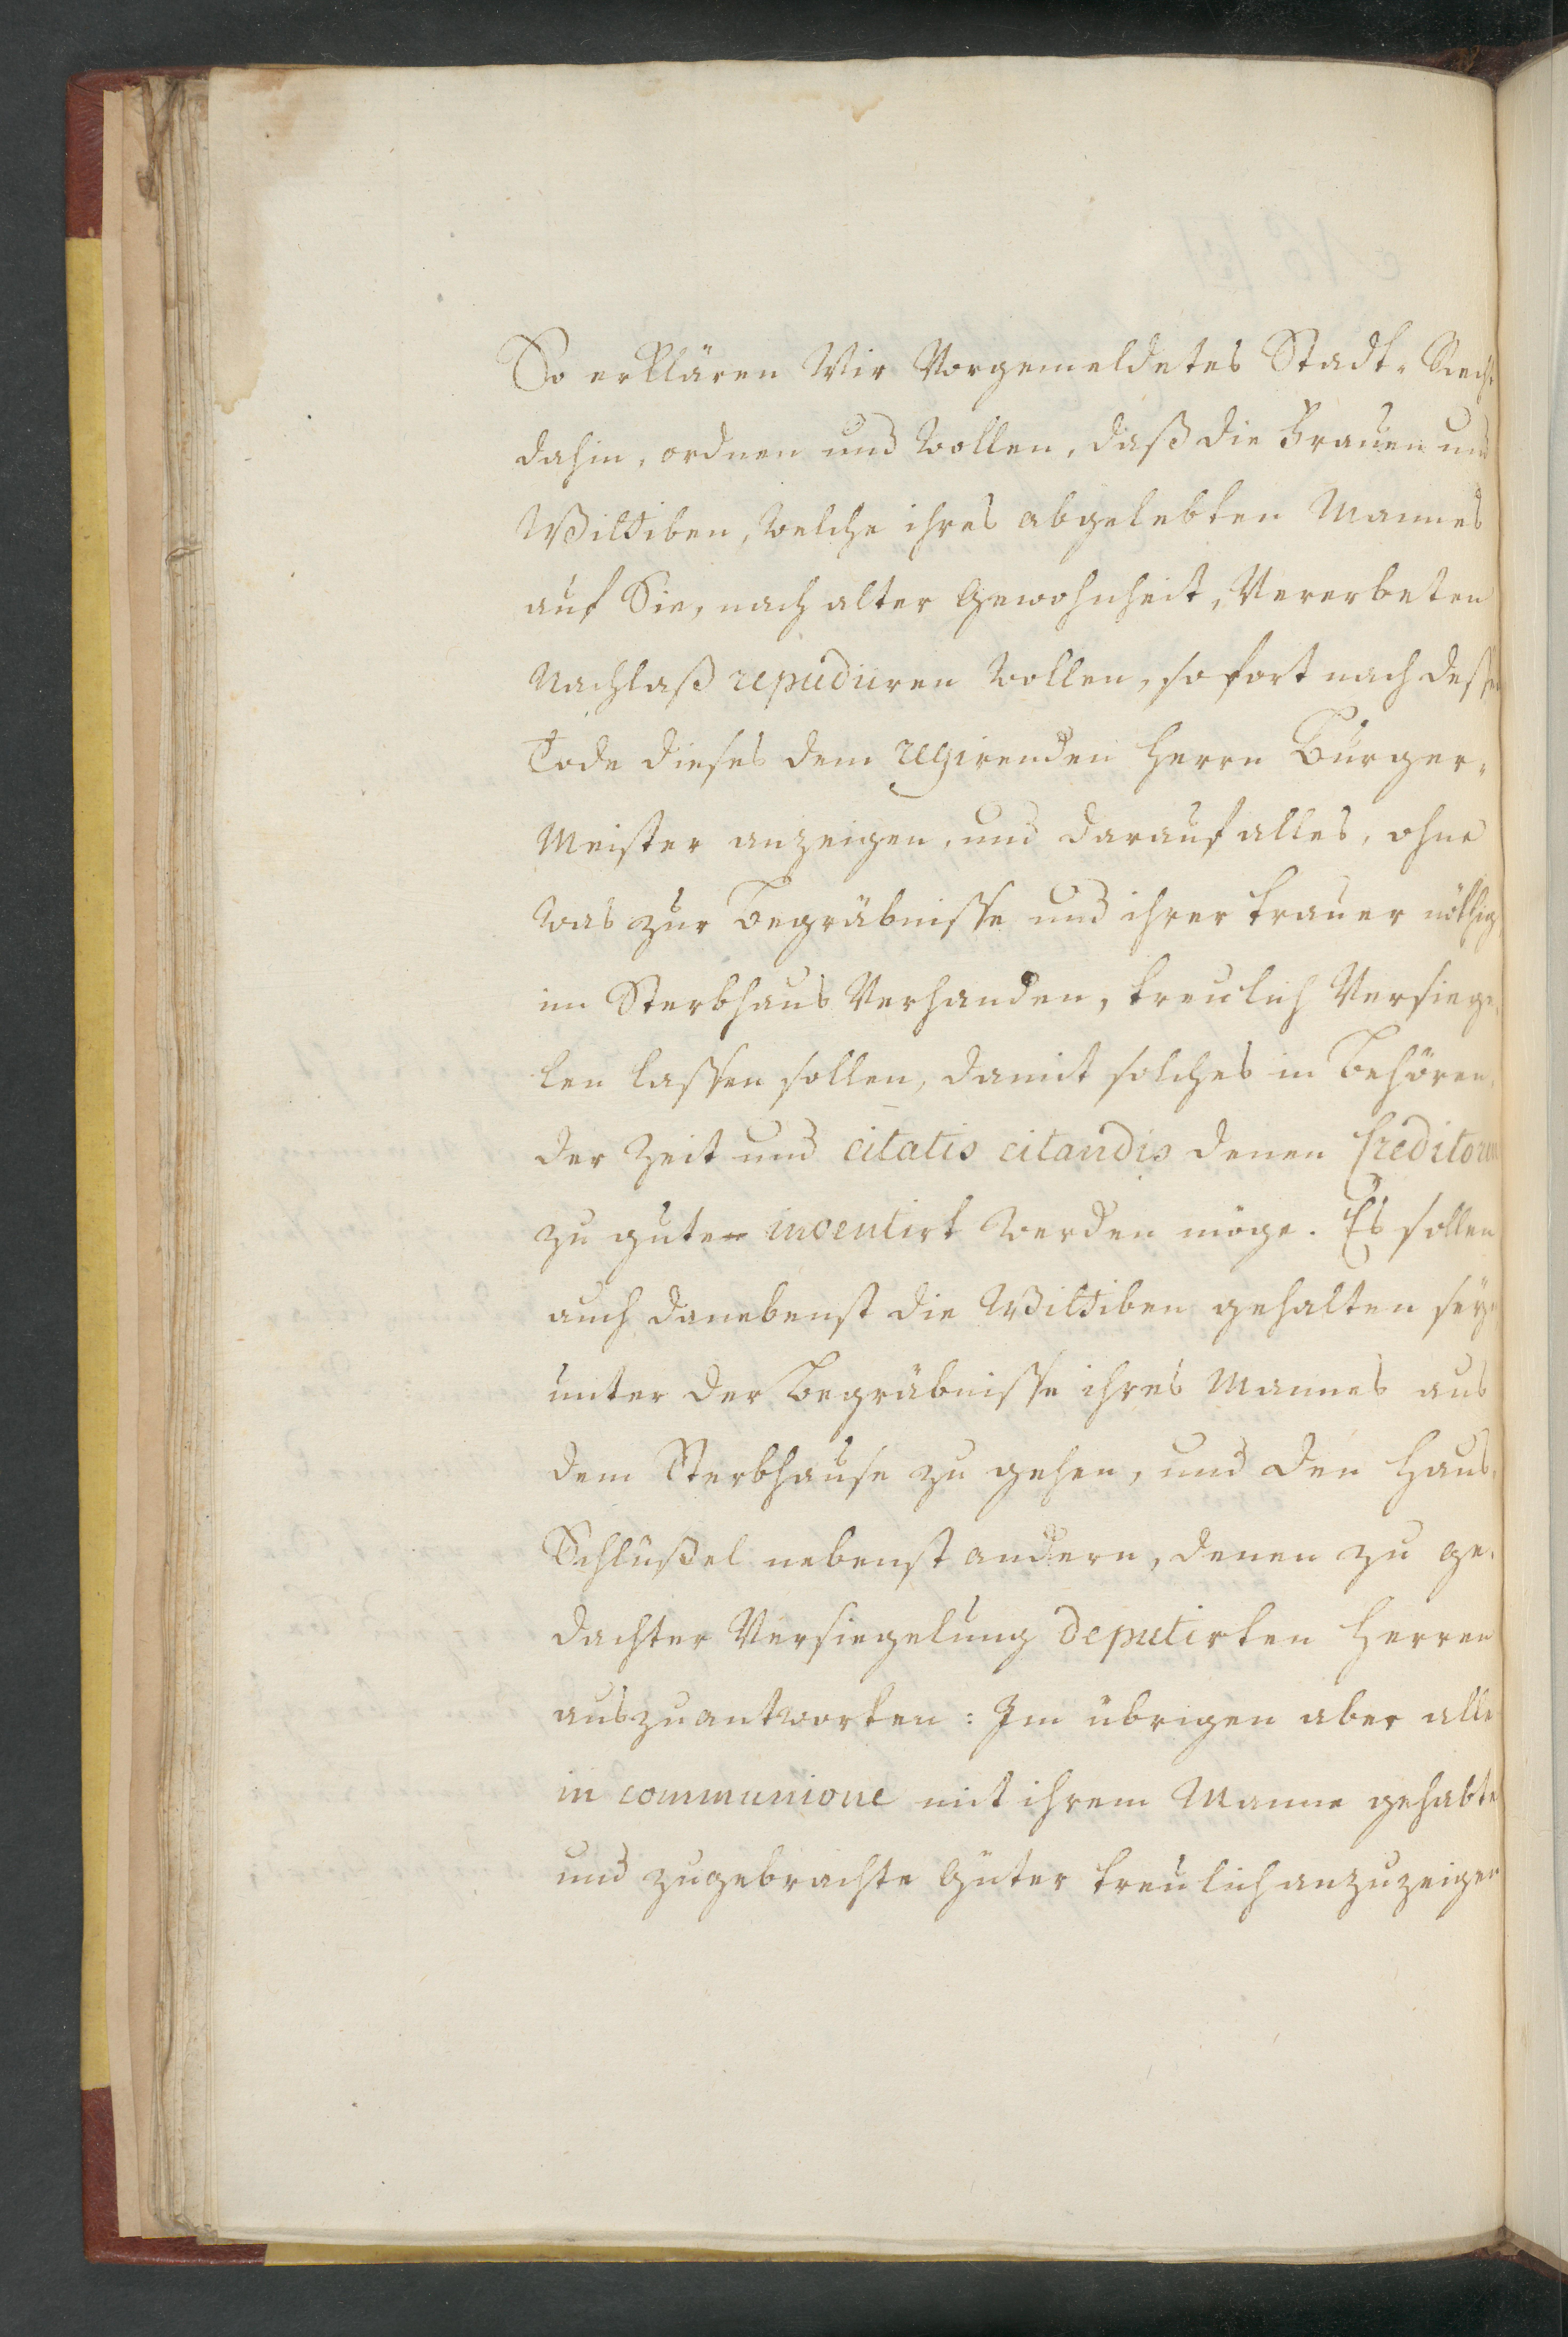 So erklären Wir Vorgemeldetes Stadt-Recht
dahin, ordnen und wollen, daß die Frauen und
Wittiben, welche ihres abgelebten Mannes
auf Sie, nach alter Gewohnheit, Vererbeten
Nachlaß repudiiren wollen, sofort nach deßen
Tode dieses dem regirenden Herrn Bürger-
Meister anzeigen, und darauf alles, ohne
was zur Begräbnisse und ihrer traüer nöthig,
im Sterbhaus Verhanden, treulich Versiege-
len lassen sollen, damit solches in Behören-
der Zeit und citatis citandis denen Creditoren
zu gute inventirt werden möge. Es sollen
auch danebenst die Wittiben gehalten seyn
unter der Begräbnisse ihres Mannes aus
dem Sterbhause zu gehen, und den Haus-
Schlüßel nebenst andern, denen zu ge-
dachter Versiegelung deputirten Herren
auszuantworten: Im übrigen aber alle
in communione mit ihrem Manne gehabte
und zugebrachte Güter treulich anzuzeigen